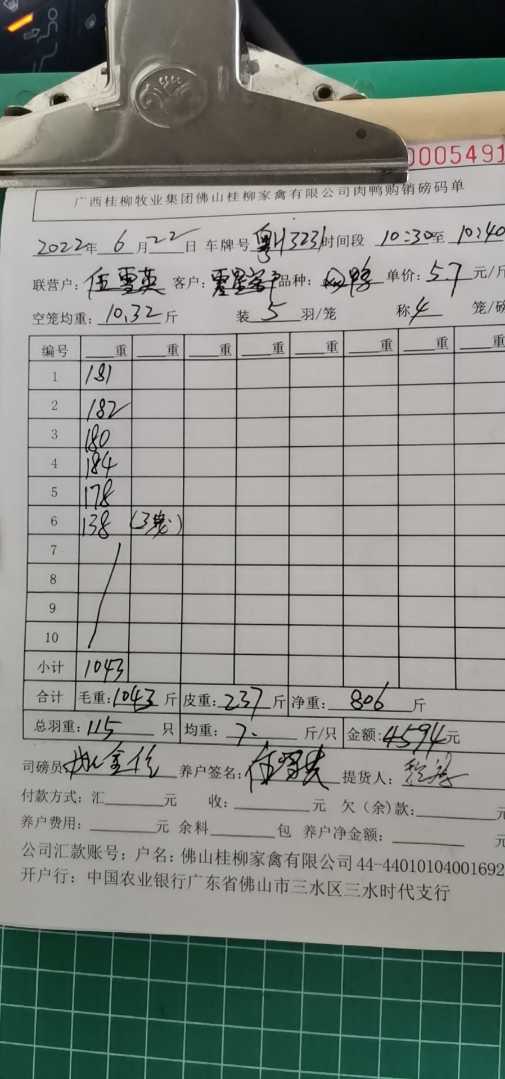 0005491
广西桂柳牧业集团佛山桂柳家禽有限公司肉鸭购销磅码单
2022年 6 月 22 日 车牌号 粤H3231 时间段 10:30至 10:40
联营户: 伍雪英 客户: 品种: 鸭 单价: 5.7 元/斤
空笼均重: 10.32 斤 装 5 羽/笼 称 4 笼/磅
编号 重 重 重 重 重 重 重 重
1 181
2 182
3 180
4 184
5 178
6 138 (3笼)
7
8
9
10
小计 1043
合计 毛重: 1043 斤 皮重: 237 斤 净重: 806 斤
总羽重: 115 只 均重: 7. 斤/只 金额: 4594元
司磅员 养户签名: 提货人:
付款方式: 汇 元 收: 元 欠(余)款: 元
养户费用: 元 余料 包 养户净金额: 元
公司汇款账号: 户名: 佛山桂柳家禽有限公司 44-44010104001692
开户行: 中国农业银行广东省佛山市三水区三水时代支行